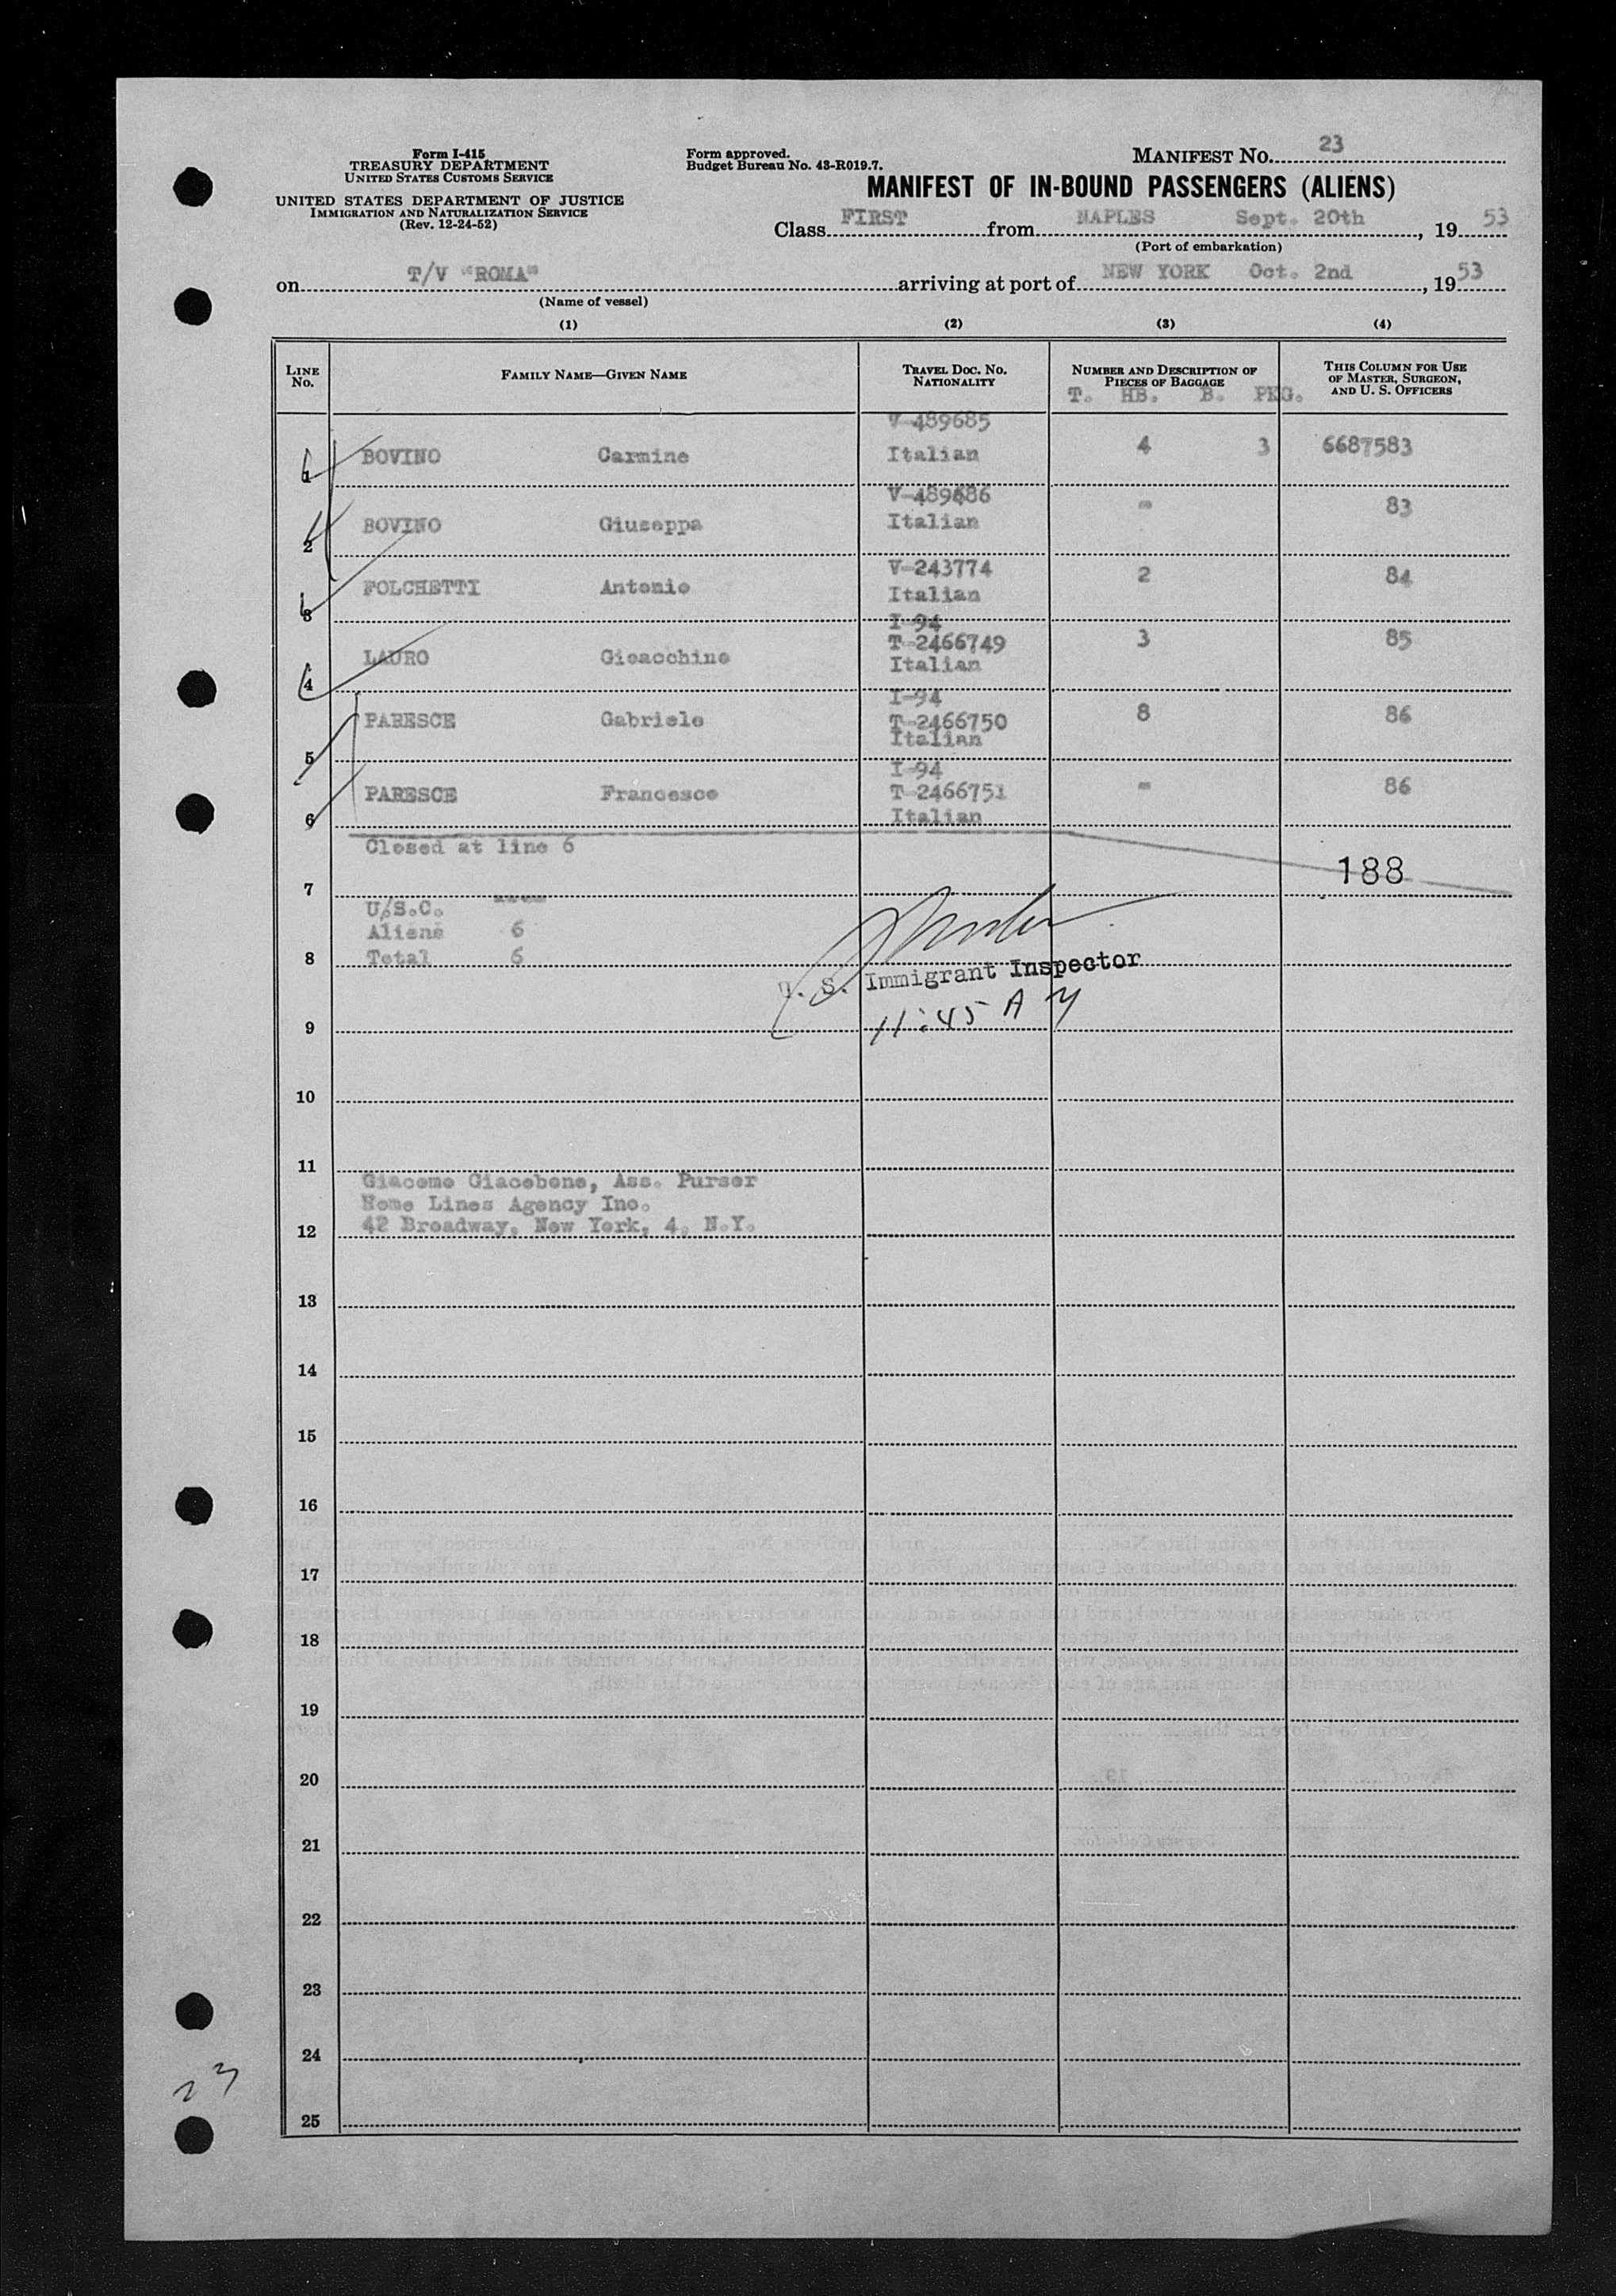 Form I-415
TREASURY DEPARTMENT
UNITED STATES CUSTOMS SERVICE
UNITED STATES DEPARTMENT OF JUSTICE
IMMIGRATION AND NATURALIZATION SERVICE
(Rev. 12-24-52)
Form approved.
Budget Bureau No. 43-R019.7.
MANIFEST NO. 23
MANIFEST OF IN-BOUND PASSENGERS (ALIENS)
Class FIRST from NAPLES Sept. 20th, 19 53
(Port of embarkation)
on T/V "ROMA" arriving at port of NEW YORK Oct. 2nd, 19 53
(Name of vessel)
(1) (2) (3) (4)
LINE NO. FAMILY NAME—GIVEN NAME TRAVEL DOC. NO. NATIONALITY NUMBER AND DESCRIPTION OF PIECES OF BAGGAGE THIS COLUMN FOR USE OF MASTER, SURGEON, AND U. S. OFFICERS
T. HB. B. PKG.
V-489685
1 BOVINO Carmine Italian 4 3 6687583
V-489686
2 BOVINO Giuseppa Italian - 83
V-243774
3 FOLCHETTI Antonio Italian 2 84
I-94
T-2466749
4 LAURO Gioacchino Italian 3 85
I-94
T-2466750
5 PARESCE Gabriele Italian 8 86
I-94
T-2466751
6 PARESCE Francesco Italian - 86
Closed at line 6
188
7
U.S.C.
Aliens 6
8 Total 6
U. S. Immigrant Inspector
11:45 A M
9
10
11
Giacomo Giacobone, Ass. Purser
Home Lines Agency Inc.
12 42 Broadway, New York, 4, N.Y.
13
14
15
16
17
18
19
20
21
22
23
24
25
23